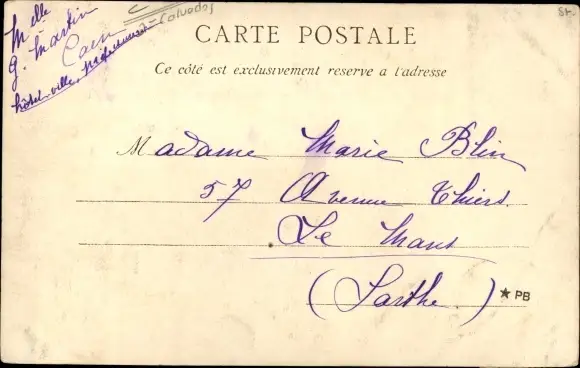 Mlle
G. Martin
Caen
Calvados
hôtel-ville,
CARTE POSTALE
Ce côté est exclusivement reserve a l'adresse
Madame Marie Blin
57 Avenue Thiers.
Le Mans
(Sarthe.)
★ PB